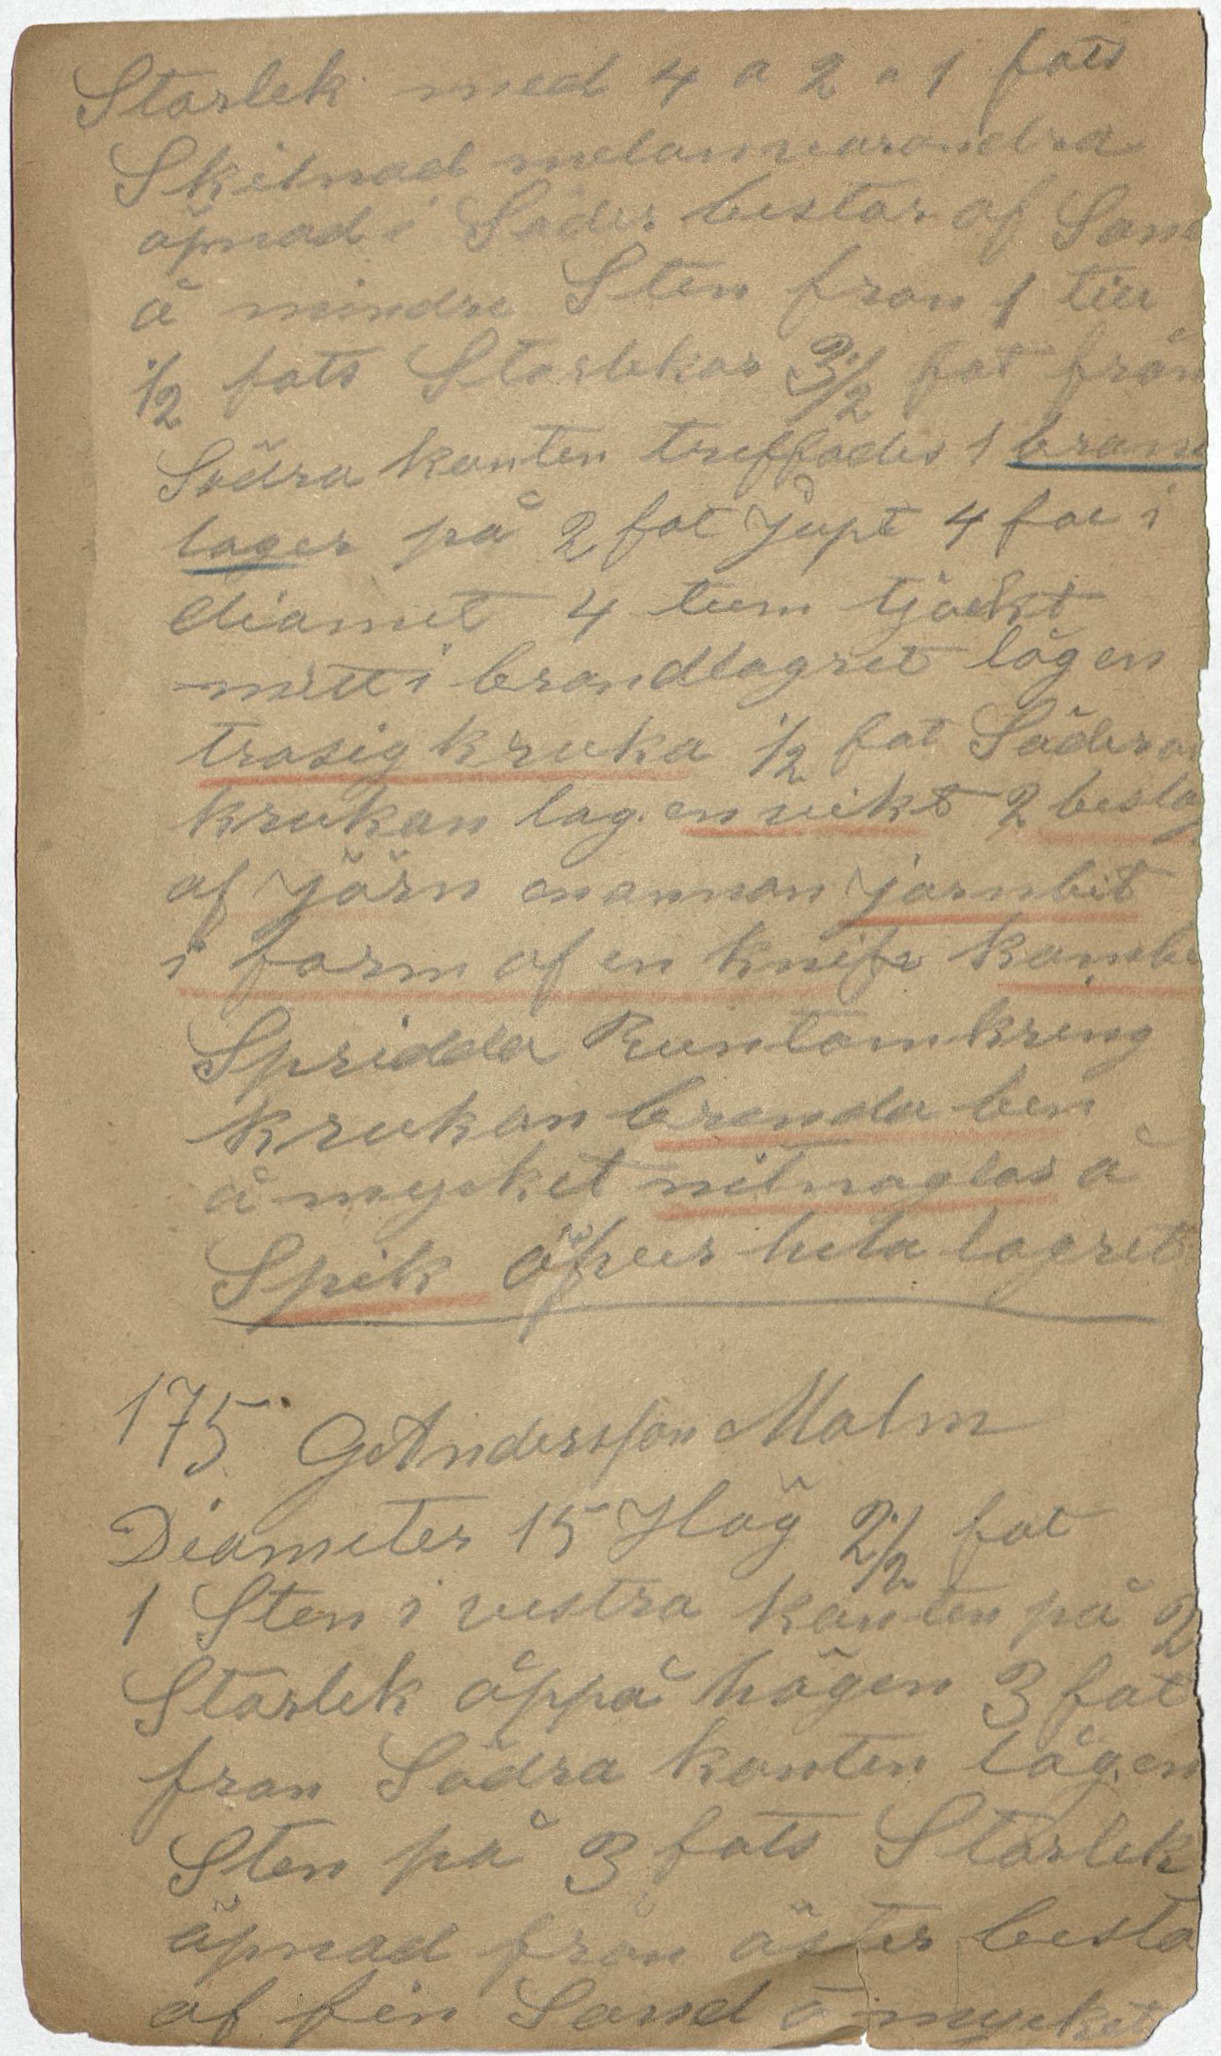 Storlek med 4 a 2 a 1 fots
Skilnad melanvarandra
öpnad i Söder. bestar af San
å mindre Sten fron 1 till
1/2 fots Storlekar 3 1/2 fot från
Södra kanten treffades 1 bran
lager på 2 fot jupt 4 fot i
diamet 4 tum tjockt
mitt i brandlagret låg en
trasig kruka 1/2 fot Söder
krukan lag en vikt 2 besla
af järn en annan jarnbit
i form af en knif
Spridda Runtomkring
krukan brenda ben
å mycket nitnaglar å
Spik öfver hela lagret
175 G Andersson Malm
Diameter 15 Hög 2 1/2 fot
1 Sten i vestra kanten på 2
Storlek åppå högen 3 fot
fron Södra kanten låg en
Sten på 3 fots Storlek
öpnad från öster besto
af fin Sand å mycket